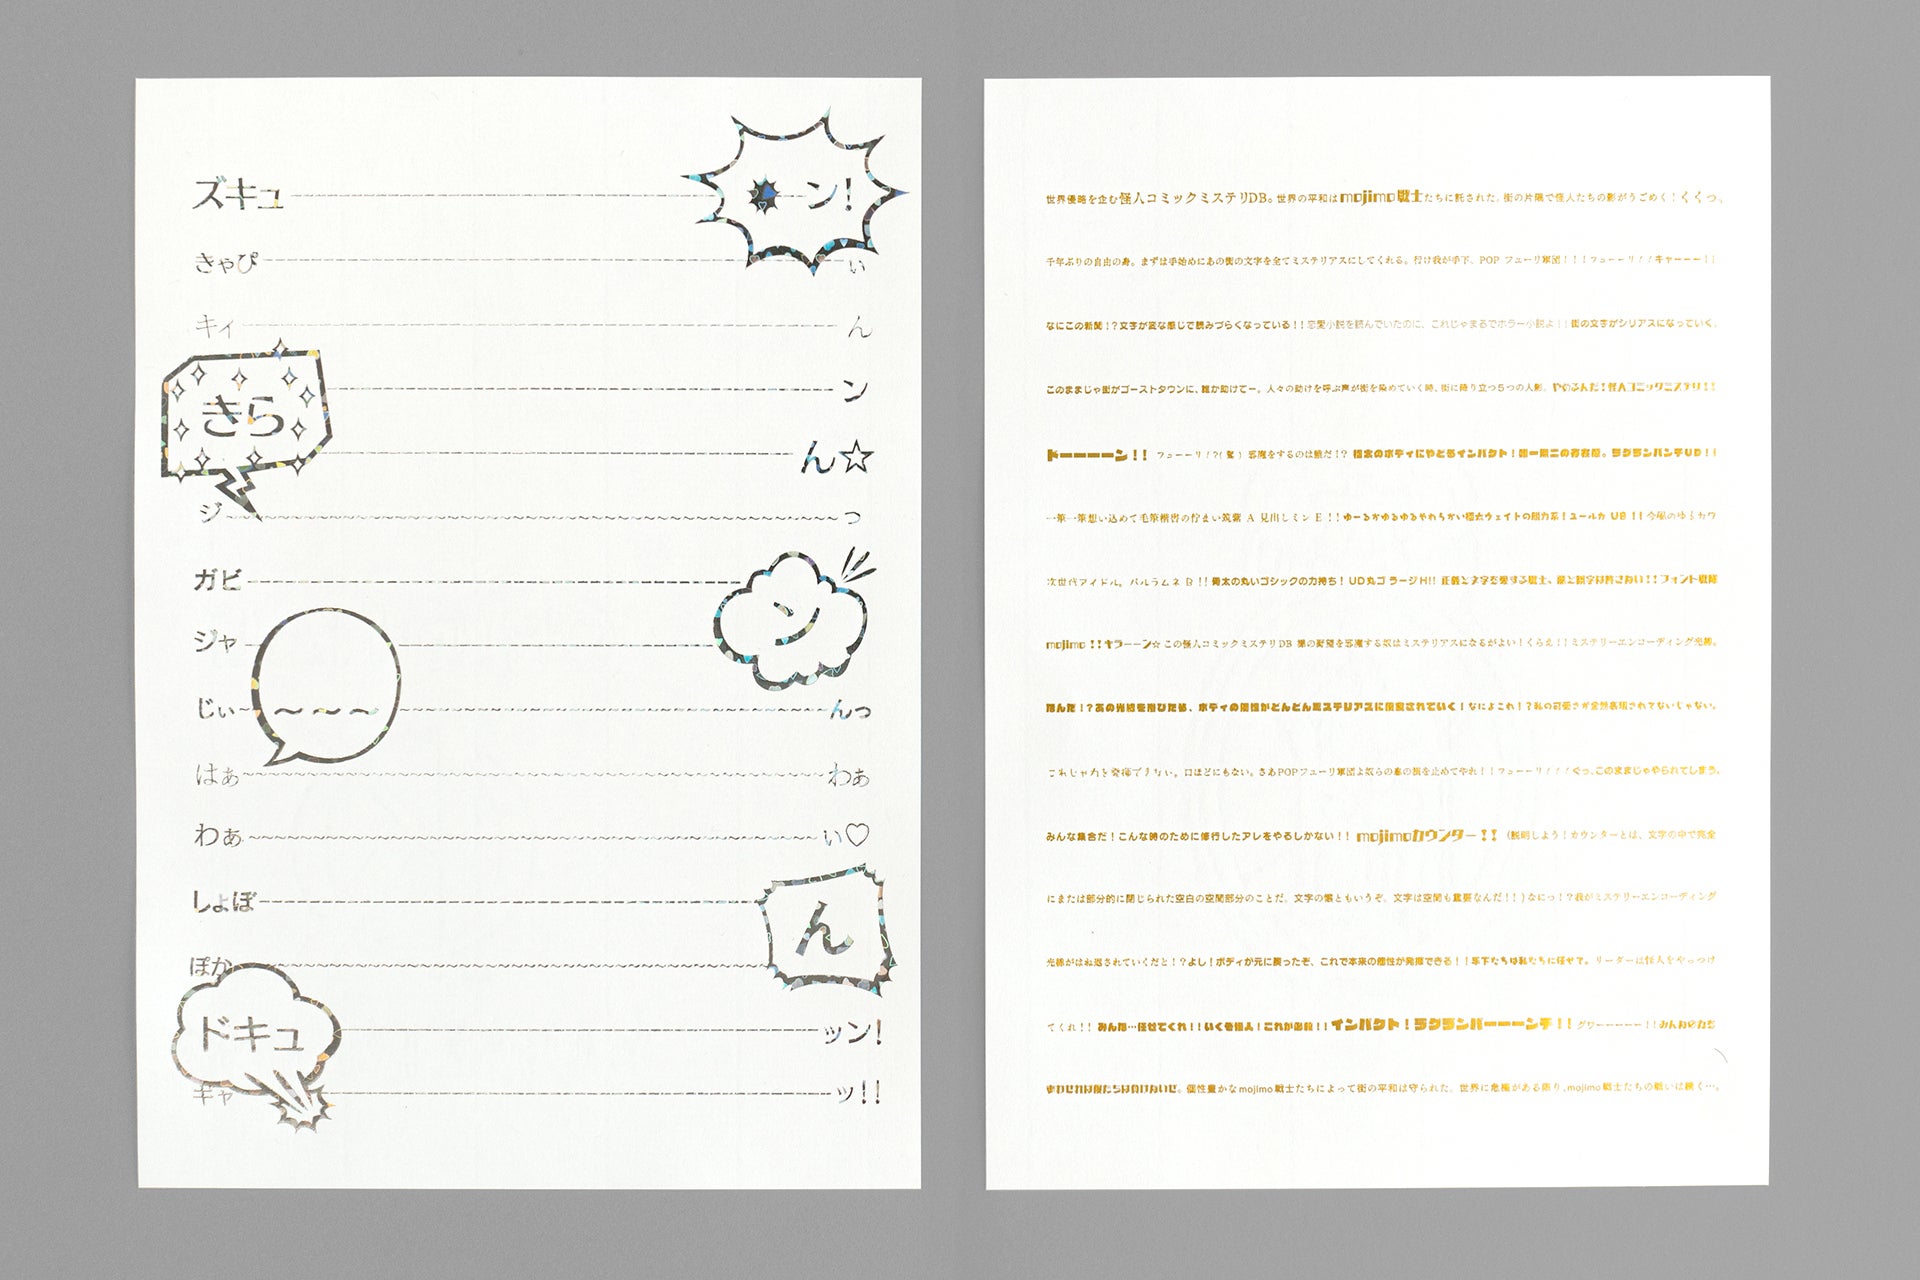 ズキュ――――ン!
きゃぴ――――い
キィ――――ん
きら
ン
ん☆
ジ～～～～っ
ガビ――――ン
ジャ――――
じぃ～～～～んっ
はぁ～～～～わぁ
わぁ～～～～い♡
しょぼ――――ん
ぽか～～～～
ドキュ――――ッン!
ギャ――――ッ!!
世界侵略を企む怪人コミックミステリDB。世界の平和はmojimo戦士たちに託された。街の片隅で怪人たちの影がうごめく!くくっ、
千年ぶりの自由の身。まずは手始めにあの街の文字を全てミステリアスにしてくれる。行け我が手下、POP フューリ軍団!!!フューーリ!!キャーーー!!
なにこの新聞!?文字が変な感じで読みづらくなっている!!恋愛小説を読んでいたのに、これじゃまるでホラー小説よ!!街の文字がシリアスになっていく。
このままじゃ街がゴーストタウンに、誰か助けてー。人々の助けを呼ぶ声が街を染めていく時、街に降り立つ5つの人影。やめるんだ!怪人コミックミステリ!!
ドーーーーン!! フューーリ!?(驚) 邪魔をするのは誰だ!? 極太のボディにやどるインパクト!唯一無二の存在感。ラグランパンチUB!!
一筆一筆想い込めて毛筆楷書の佇まい筑紫 A 見出しミン E!!ゆーるかゆるゆるやわらかい極太ウェイトの脱力系!ユールカ UB!!今風のゆるカワ
次世代アイドル。パルラムネ B!!骨太の丸いゴシックの力持ち!UD丸ゴ ラージH!!正義と文字を愛する戦士、誤と脱字は許さない!!フォント戦隊
mojimo!!キラーーン☆この怪人コミックミステリDB 様の野望を邪魔する奴はミステリアスになるがよい!くらえ!!ミステリーエンコーディング光線。
なんだ!?あの光線を浴びた途、ボディの個性がどんどんミステリアスに侵食されていく!なによこれ!?私の可愛さが全然表現されてないじゃない。
これじゃ力を発揮できない。口ほどにもない。さあPOPフューリ軍団よ奴らの息の根を止めてやれ!!フューーリ!!!くっ、このままじゃやられてしまう。
みんな集合だ!こんな時のために修行したアレをやるしかない!! mojimoカウンター!!(説明しよう!カウンターとは、文字の中で完全
にまたは部分的に閉じられた空白の空間部分のことだ。文字の懐ともいうぞ。文字は空間も重要なんだ!!)なにっ!?我がミステリーエンコーディング
光線がはね返されていくだと!?よし!ボディが元に戻ったぞ、これで本来の個性が発揮できる!!手下たちは私たちに任せて。リーダーは怪人をやっつけ
てくれ!!みんな…任せてくれ!!いくぞ怪人!これが必殺!!インパクト!ラグランパーーーンチ!!グワーーーーー!!みんなの力を
合わせれば僕たちは負けないぜ。個性豊かなmojimo戦士たちによって街の平和は守られた。世界に危機がある限り、mojimo戦士たちの戦いは続く…。